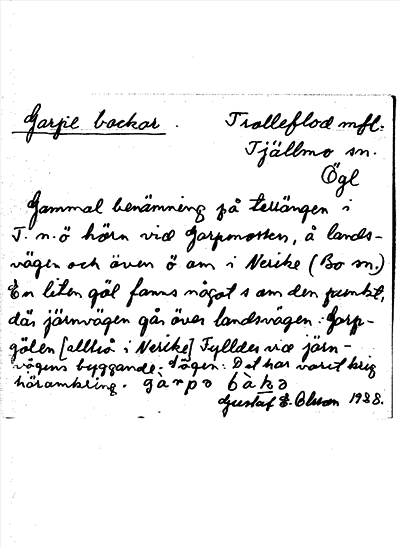 Garpe backar. Trolleflod mfl.
Tjällmo sn.
Ögl
Gammal benämning på terrängen i
T. n.ö hörn vid Garpmossen, å lands-
vägen och även ö om i Nerike (Bo sn.)
En liten göl fanns något s om den punkt,
där järnvägen går över landsvägen: Garp-
gölen [alltså i Nerike] Fylldes vid järn-
vägens byggande. Sägen: Det har varit krig
häromkring. gàrpə bàkə
Gustaf E. Olsson 1938.